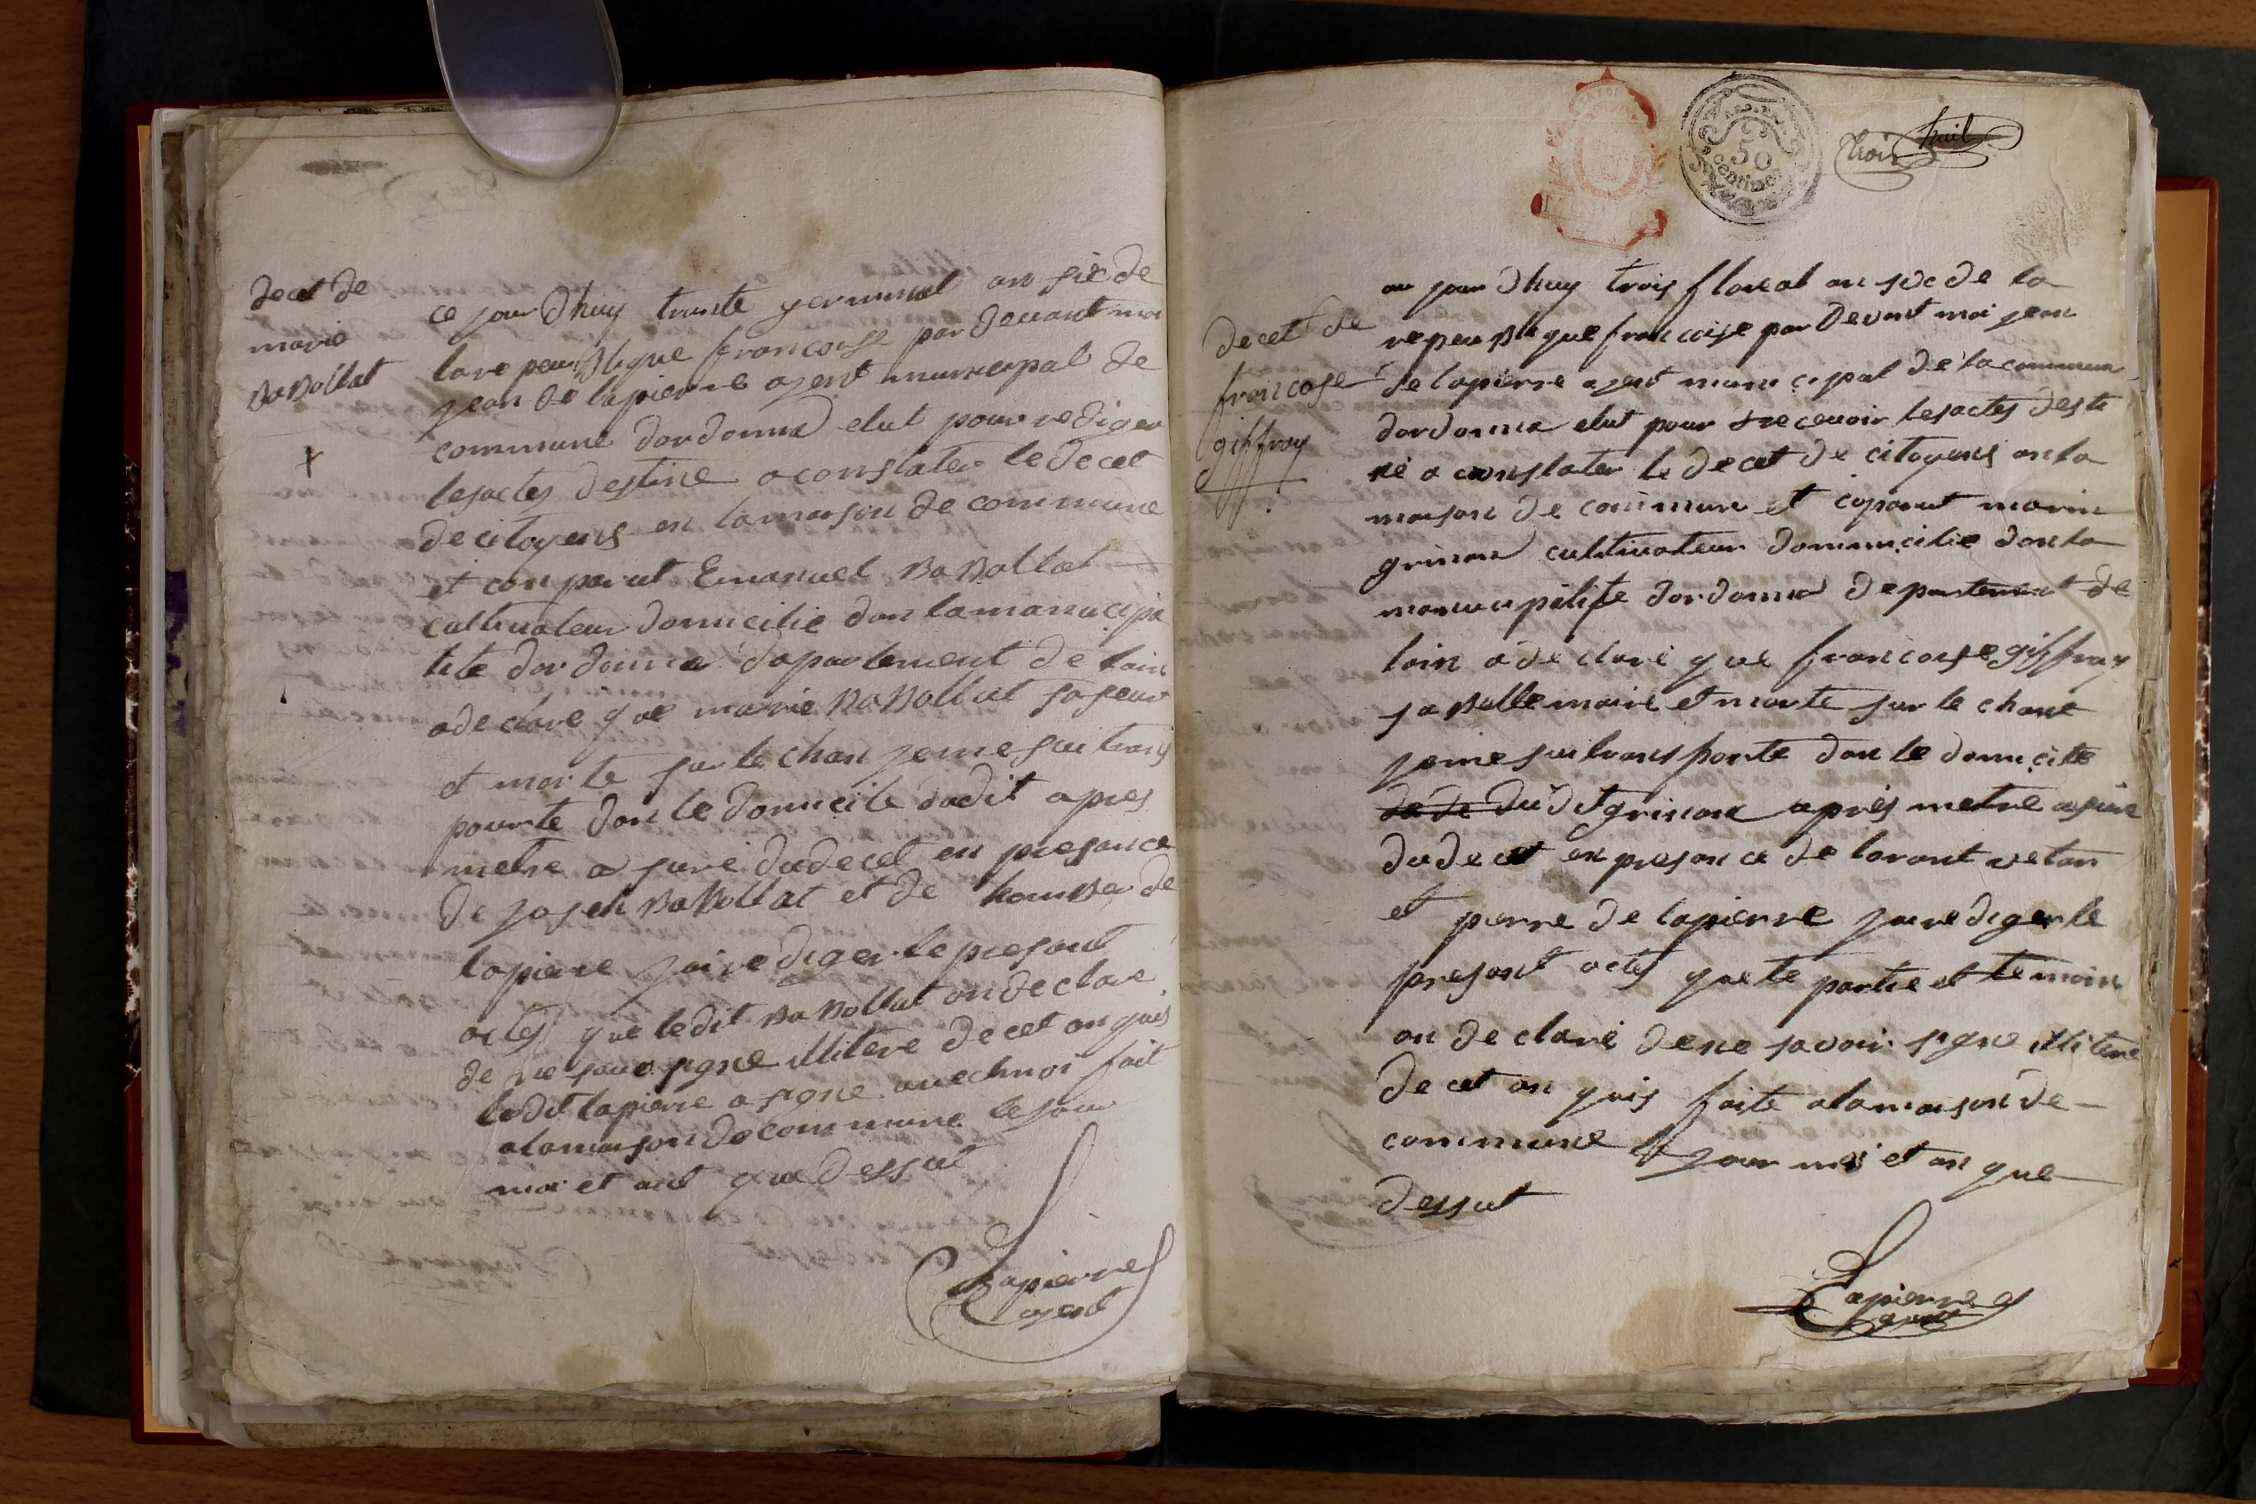 decet de
marie
Babollat
ce jour dhuy trante germinal an sis de
la repeublique francoise par devant moi
jean de lapierre agent municipal de
commune dordonna elut pour rediger
les actes destine a constater le decet
de citoyens en la maison de commune
et conparut Emanuel Babollat
cultivateur domicilie dans la manucipa
lite dordonna departement de lain
a declare que marie Babollat sa seur
et morte sur le chan je me sui trans
pourte dans le domicile dudit apres
metre a sure du decet en presance
de joseh Babollat et de de
lapierre jai rediger le presant
actes que ledit Babollat on declare
de ne signe illitere de cet anquis
ledit lapierre a signe avec moi fait
a la maison de commune le jour
moi et ant que dessut
Lapierre
agent
huit
trois
50
centimes
decet de
francoise
giffray
au jour dhuy trois floreal an sis de la
repeublique francoise par devant moi jean
de lapierre agent municipal de la commune
dordonna elut pour recevoir les actes desti
né a constater le decet de citoyens an la
maison de commune et coparut marin
grinand cultivateur domimicilie dan la
manucipalite dordonna departement de
lain a declaré que francoise giffray
sa belle maire et morte sur le chant
je me sui transporte dan le domicile
de de du dit grinand après metre asure
du decet en presance de lorant
et pierre de lapierre jai rediger le
presant actes que le partie et temoin
on declaré de ne savoir signe illitere
de cet an quis faite a la maison de
commune le jour moi et an que
dessut
Lapierre
agent